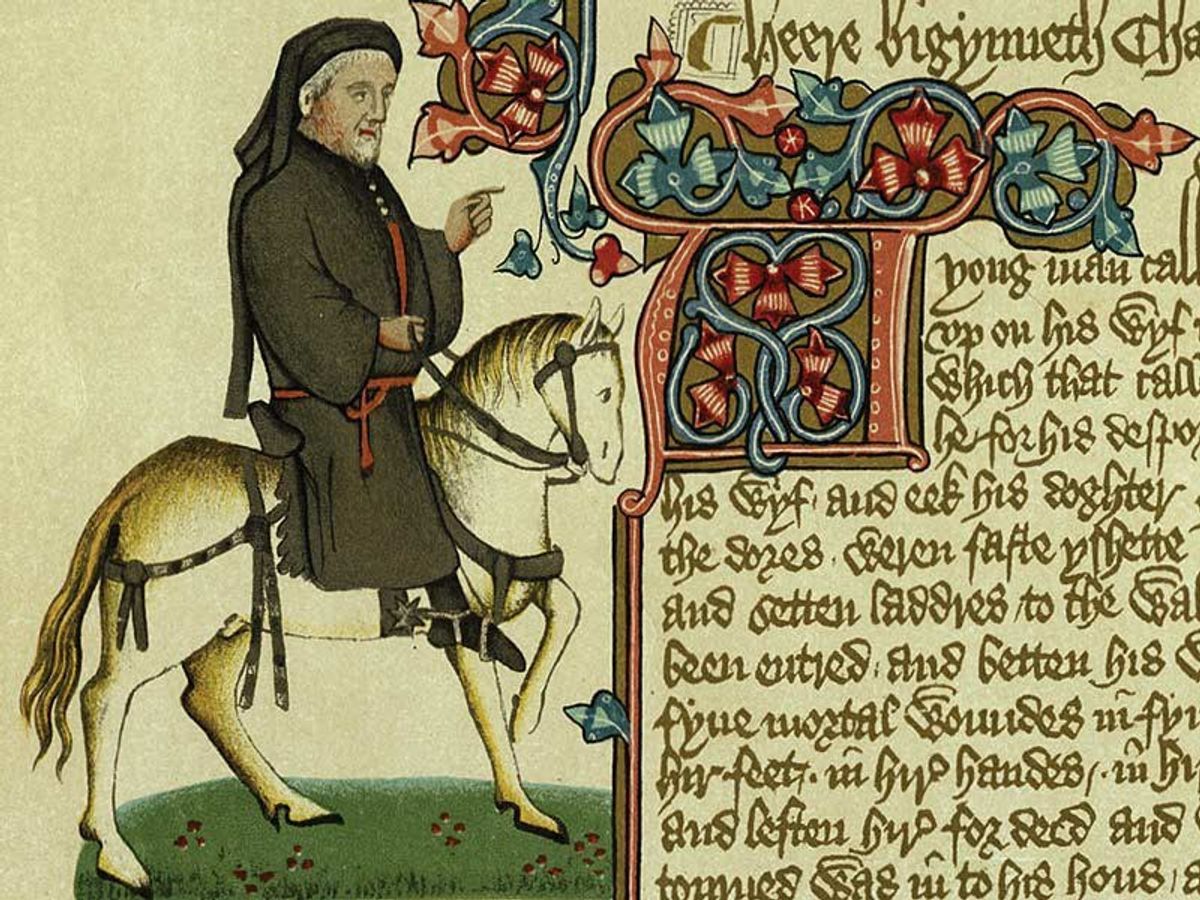 Heere bigynneth Cha
A yong man call
vp on his Wyf
Which that call
he for his despo
his Wyf· and eek his doghter
the dores· weren faste yshette
and setten laddres/ to the Wa
been entred· and betten his W
fyue mortal Woundes in fyu
hir feet/· in hir handes/· in hi
and leften hir for deed and
tourned Was in to his hous/ a